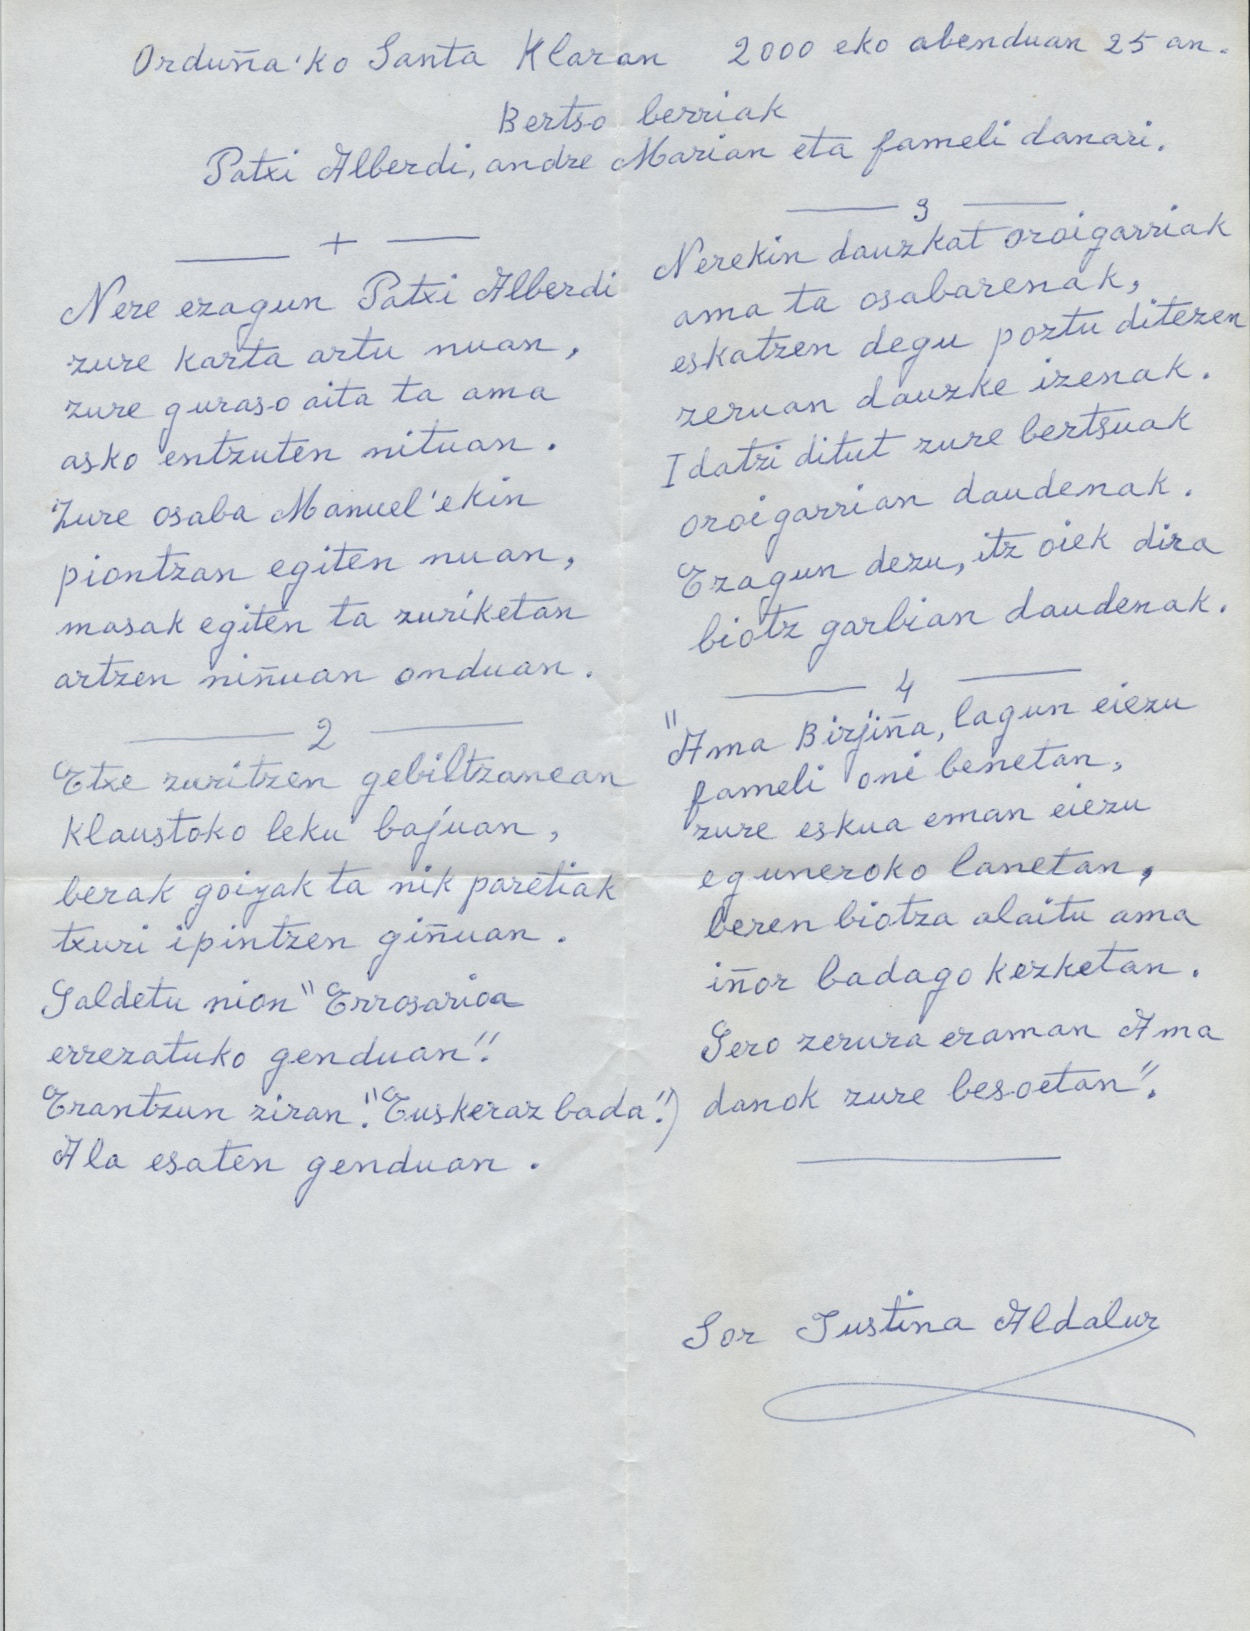 Orduña'ko Santa Klaran 2000 eko abenduan 25 an.
Bertso berriak
Patxi Alberdi, andre Marian eta fameli danari.
+
Nere ezagun Patxi Alberdi
zure karta artu nuan,
zure guraso aita ta ama
asko entzuten nituan.
Zure osaba Manuel'ekin
piontzan egiten nuan,
masak egiten ta zuriketan
artzen niñuan onduan.
2
Etxe zuritzen gebiltzanean
Klaustoko leku bajuan,
berak goiyak ta nik paretiak
txuri ipintzen giñuan.
Galdetu nion "Errosarioa
errezatuko genduan".
Erantzun ziran: "Euskeraz bada".)
Ala esaten genduan.
3
Nerekin dauzkat oroigarriak
ama ta osabarenak,
eskatzen degu poztu ditezen
zeruan dauzke izenak.
Idatzi ditut zure bertsuak
oroigarrian daudenak.
Ezagun dezu, itz oiek dira
biotz garbian daudenak.
4
"Ama Birjiña, lagun eiezu
fameli oni benetan,
zure eskua eman eiezu
eguneroko lanetan,
beren biotza alaitu ama
iñor badago kezketan.
Gero zerura eraman Ama
danok zure besoetan".
Sor Justina Aldalur